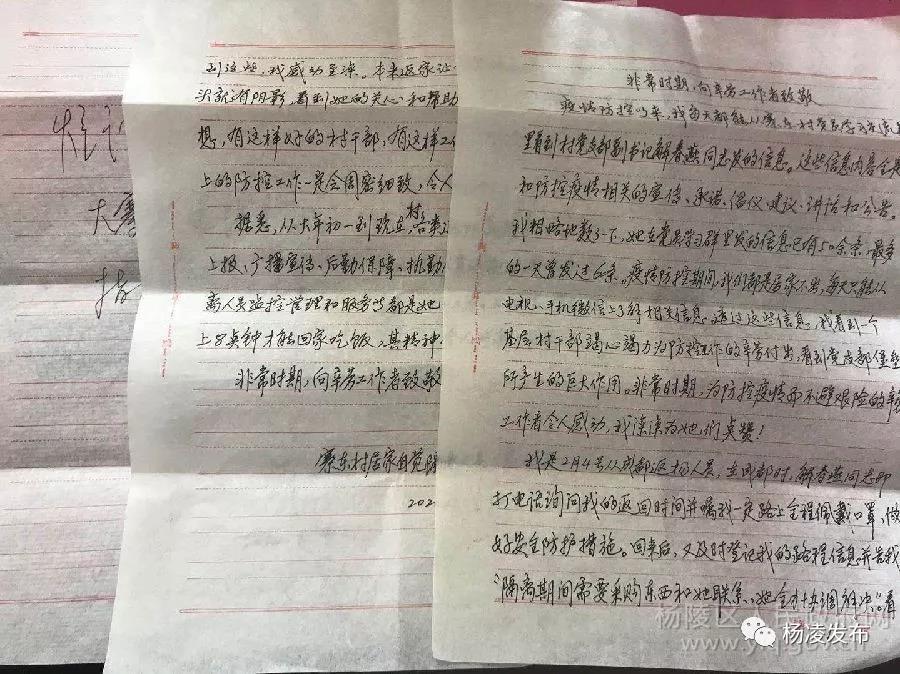 非常时期,向辛劳工作者致敬
疫情防控以来,我每天都能从
里看到村党支部副书记解春燕同志发的信息。这些信息内容全是
和防控疫情相关的宣传、承诺、倡仪、建议、讲话和公告。
我粗略地数了下,她在党员学习群里发的信息已有50余条,最多
的一天曾发过
疫情防控期间,我们都是居家不出,每天只能从
电视、手机微信上了解相关信息。通过这些信息,我看到一个
基层村干部竭心竭力为防控工作的辛劳付出,看到党支部堡垒
所产生的巨大作用。非常时期,为防控疫情而不避艰险的辛
工作者令人感动,我深深为她们点赞!
我是2月4号从成都返杨人员,在成都时,解春燕同志即
打电话询问我的返回时间并嘱我一定路上全程佩戴口罩,做
好安全防护措施。回来后,又及时登记我的路程信息并告我
“隔离期间需要采购东西和她联系,她全力协调解决。”看
到这些,我感动至深。本来返家让
沉
阴影,看到她的关心和帮助
想,有这样好的村干部,有这样工
上的防控工作一定会周密细致,令人
据悉,从大年初一到现在,村
上报、广播宣传、后勤保障、执勤
离人员监控管理和服务等都是她
上8点钟才能回家吃饭,其精神
非常时期,向辛劳工作者致敬
寨东村居家自觉隔
202
大寨
杨陵区人民政府网
www.ylq.gov.cn
杨凌发布